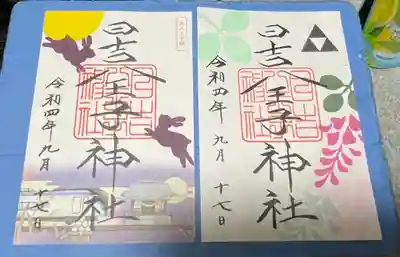 日吉八王子神社
令和四年九月十七日
日吉八王子神社
令和四年九月十七日